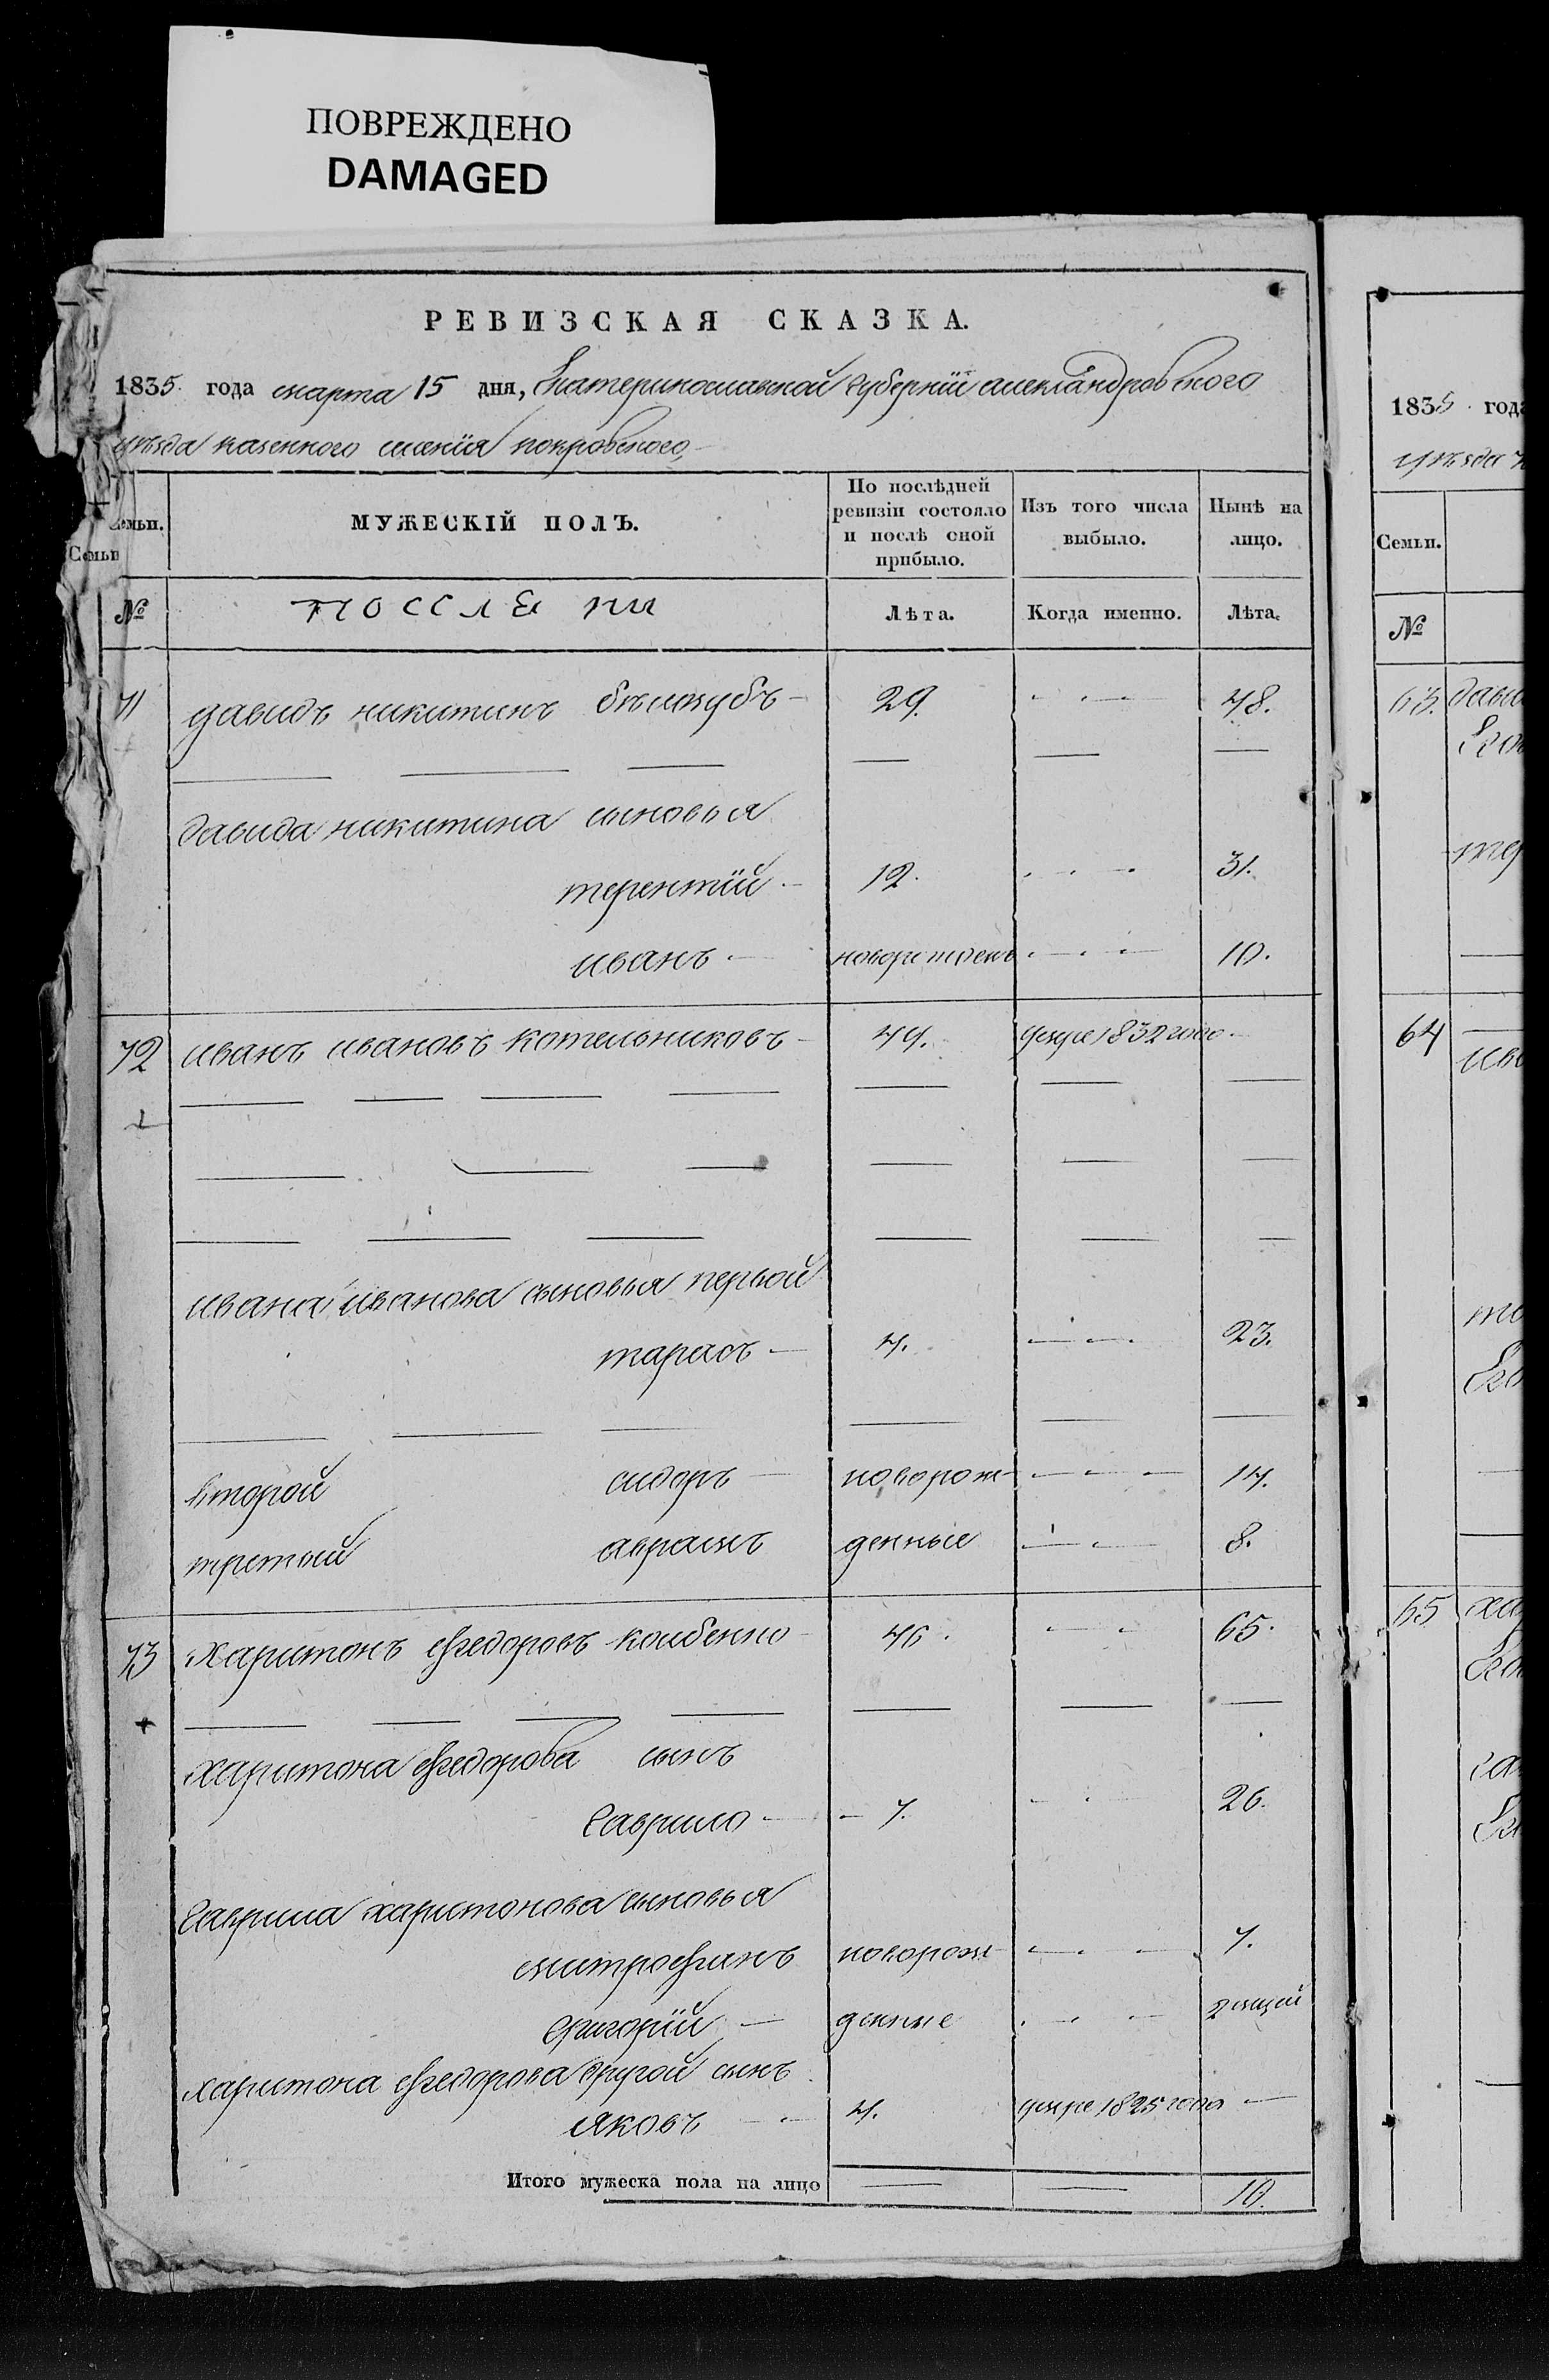 ПОВРЕЖДЕНО
DAMAGED
РЕВИЗСКАЯ СКАЗКА.
1835 года марта 15 дня, Екатеринославской губерніи александровского
уѣзда казенного имѣнія покровского,
Семьи.
Семьи
МУЖЕСКІЙ ПОЛЪ.
По послѣдней ревизіи состояло и послѣ оной прибыло.
Изъ того числа выбыло.
Нынѣ на лицо.
№
Лѣта.
Когда именно.
Лѣта.
71 давидъ никитинъ бѣлозубъ 29. 48.
давида никитина сыновья
терентій 12. 31.
иванъ новорожденъ 10.
72 иванъ ивановъ котельниковъ 49. умре 1832 года
ивана иванова сыновья первой
тарасъ 4. 23.
второй сидоръ новорож 14.
третьий авраамъ денные 8.
73 харитонъ федоровъ 46. 65.
харитона федорова сынъ
гаврило 7. 26.
гаврила харитонова сыновья
митрофанъ новорож 7.
григорій денные
харитона федорова другой сынъ
яковъ 4. умре 1825 года
Итого мужеска пола на лицо 10.
1835 года
уѣзда
Семьи.
№
63.
64
65